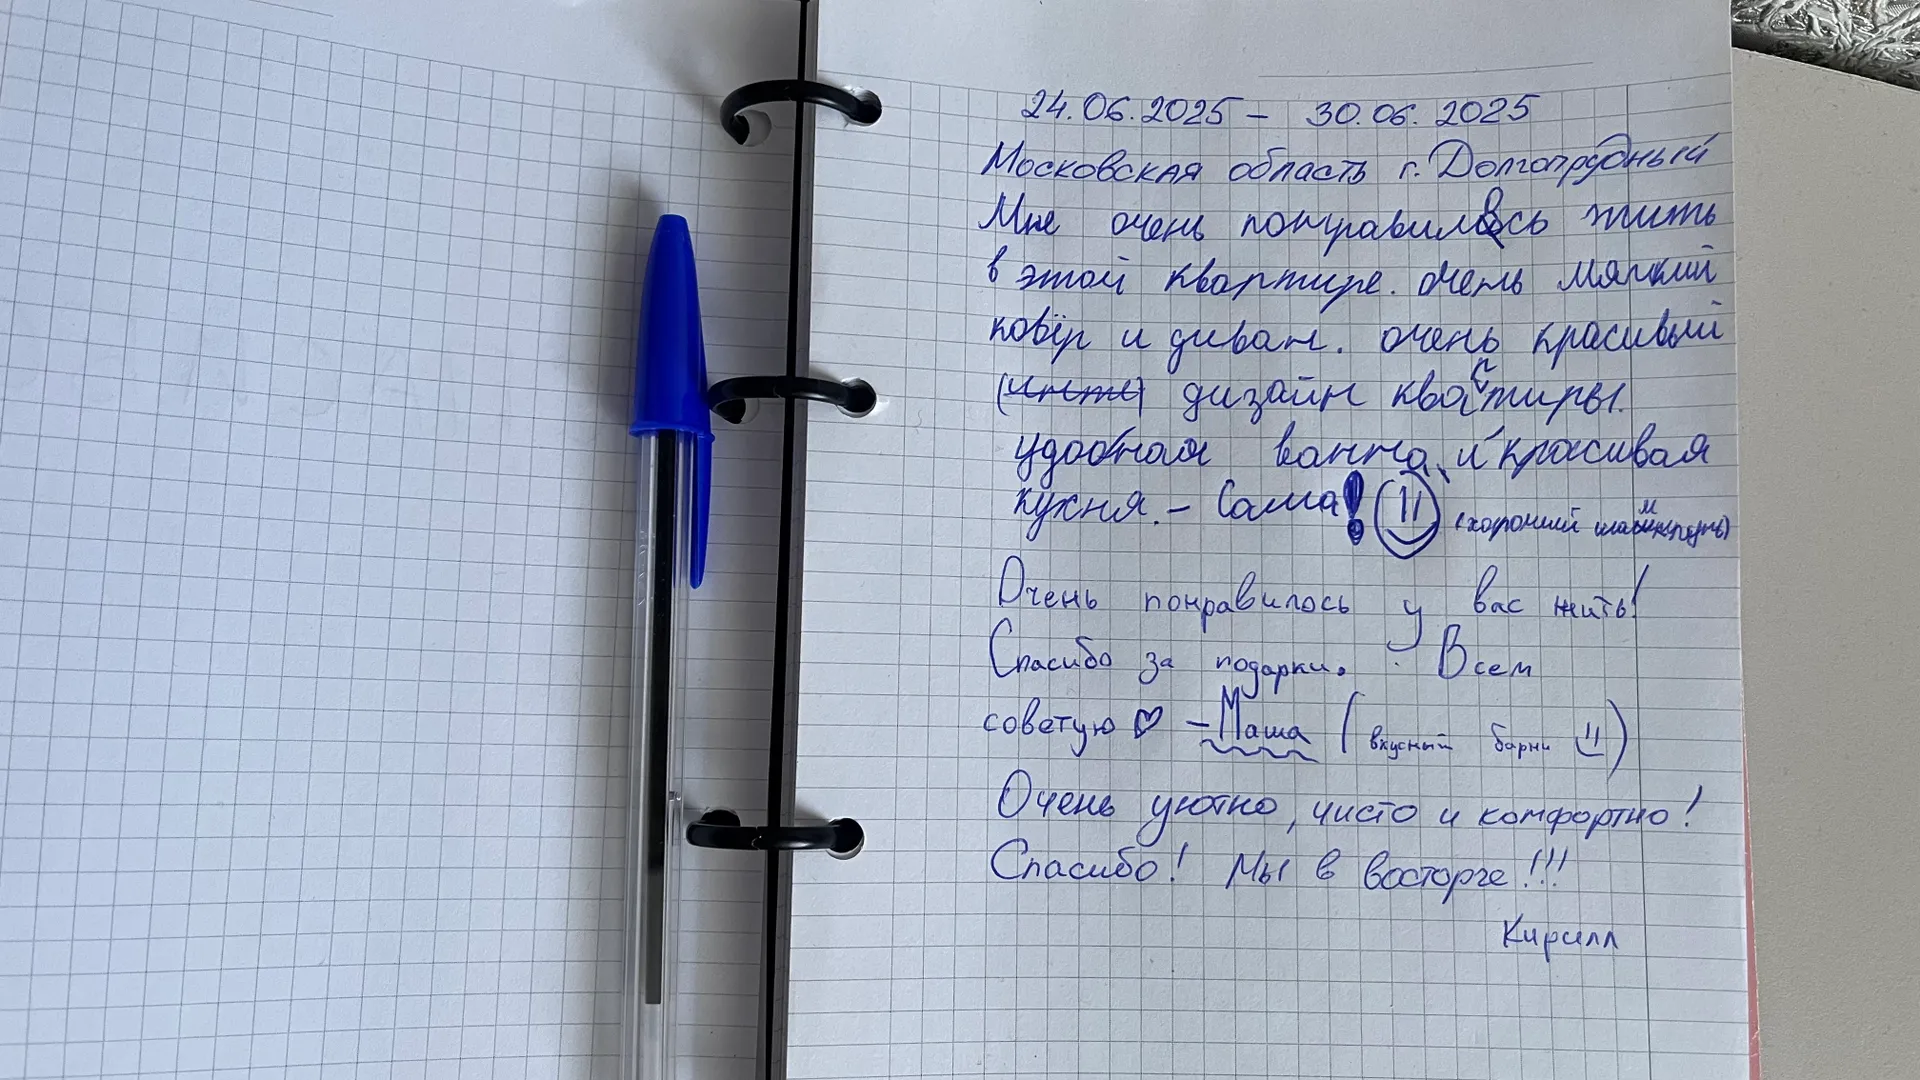 24.06.2025 – 30.06.2025
Московская область г. Долгопрудный
Мне очень понравилось жить
в этой квартире. очень мягкий
ковёр и диван. очень красивый
дизайн квартиры.
удобная ванна, и красивая
кухня. – Саша!
(хороший
Очень понравилось у вас жить!
Спасибо за подарки. Всем
советую ♡ – Маша (вкусный барни
Очень уютно, чисто и комфортно!
Спасибо! Мы в восторге!!!
Кирилл